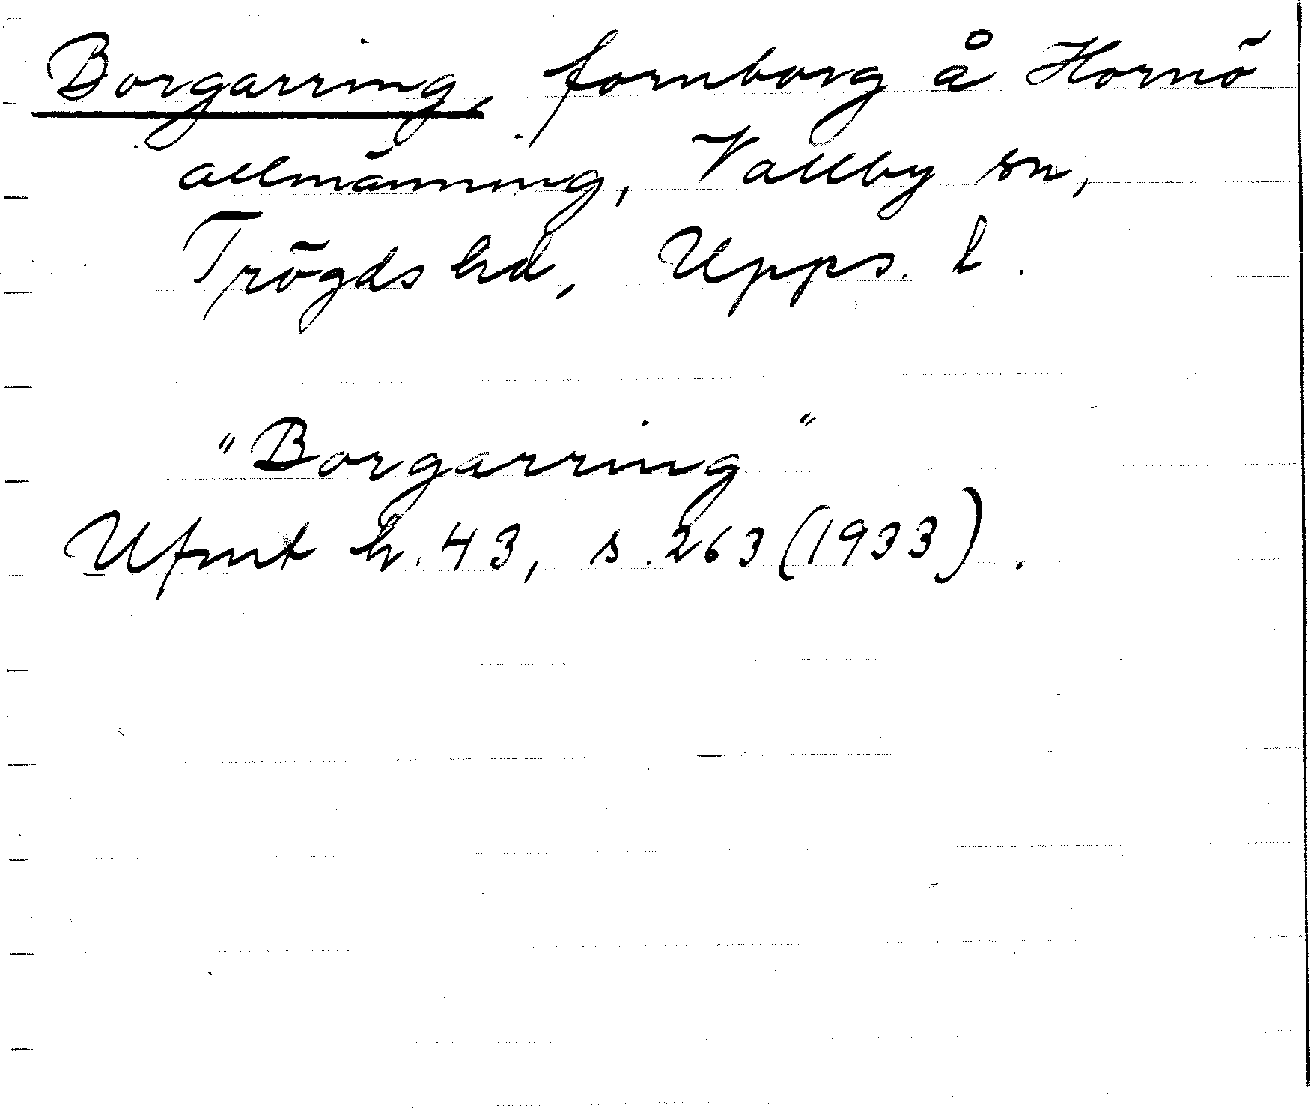 Borgarring, fornborg å Hornö
allmänning, Vallby sn,
Trögds hd, Upps. l.
"Borgarring"
Ufmt h. 43, s. 263 (1933).